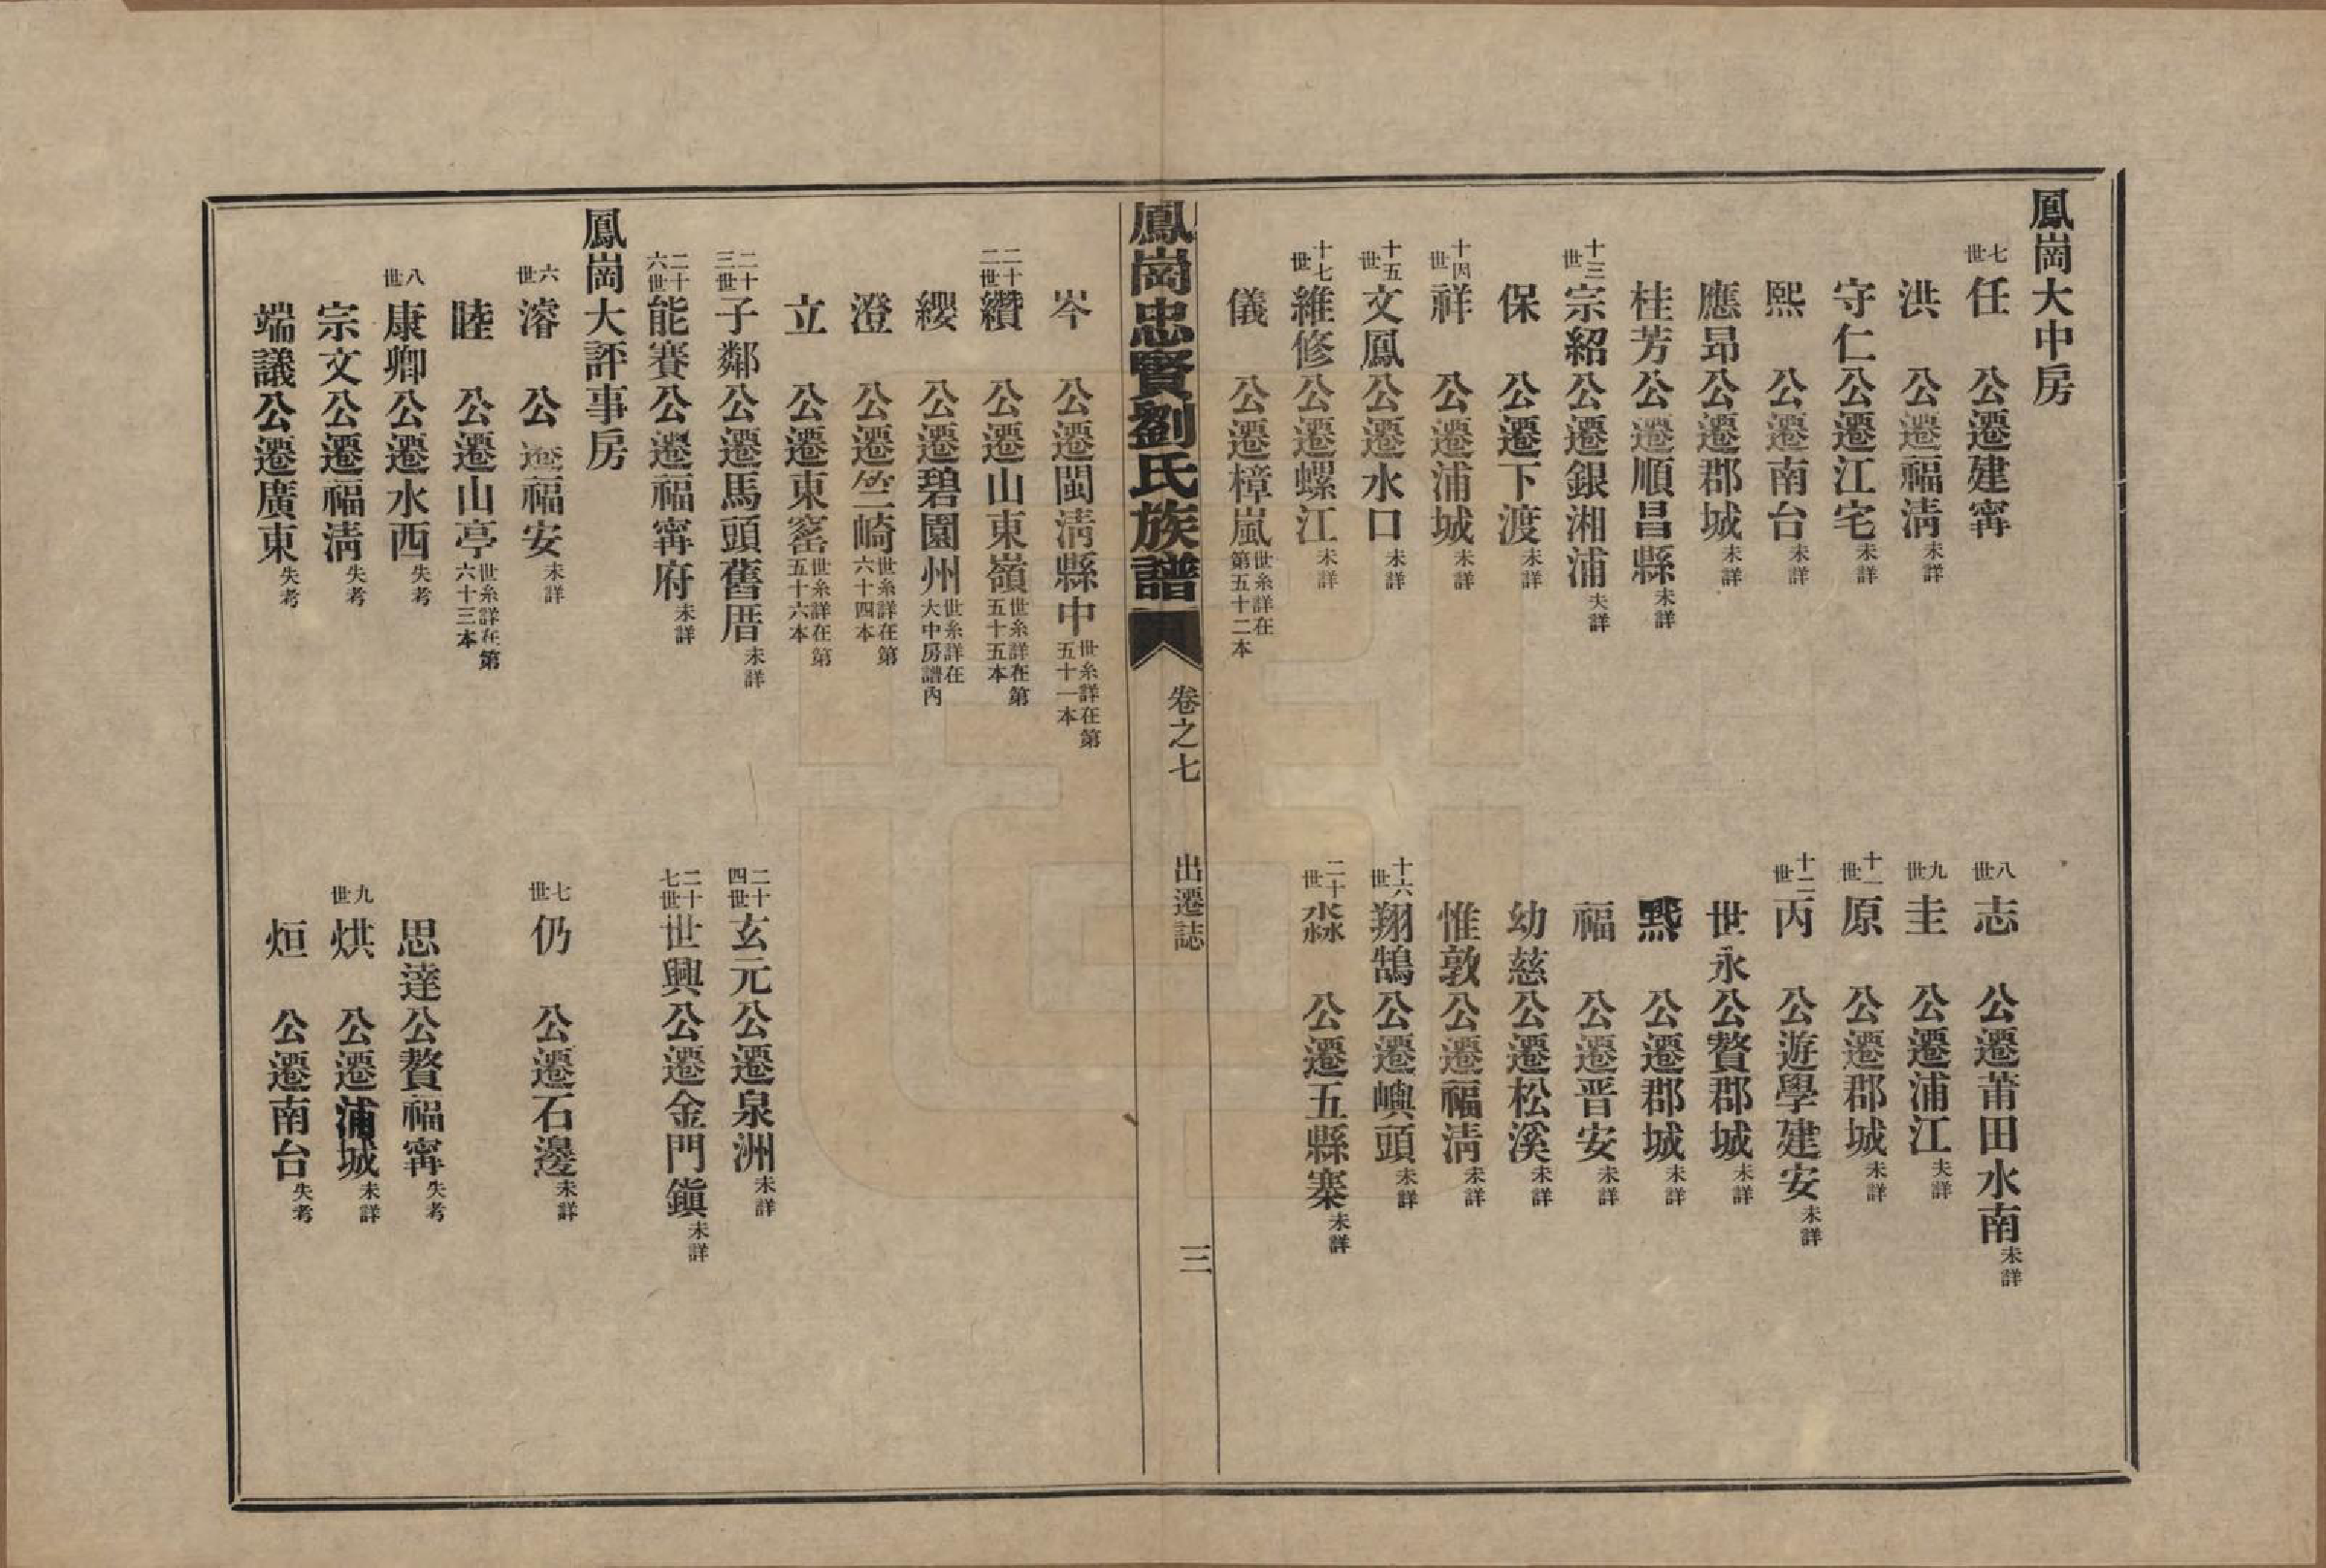 鳳崗大中房
七世任　公遷建寗
八世志　公遷莆田水南未詳
洪　公遷福淸未詳
九世圭　公遷浦江失詳
守仁公遷江宅未詳
十一世原　公遷郡城未詳
熙　公遷南台未詳
十二世丙　公遊學建安未詳
應昂公遷郡城未詳
世永公贅郡城未詳
桂芳公遷順昌縣未詳
公遷郡城未詳
十三世宗紹公遷銀湘浦失詳
福　公遷晋安未詳
保　公遷下渡未詳
幼慈公遷松溪未詳
十四世祥　公遷浦城未詳
惟敦公遷福淸未詳
十五世文鳳公遷水口未詳
十六世翔鵠公遷嶼頭未詳
十七世維修公遷螺江未詳
二十世淼　公遷五縣寨未詳
儀　公遷樟嵐世系詳在第五十二本
鳳崗忠賢劉氏族譜　卷之七　出遷誌　三
岑　公遷閩淸縣中世系詳在第五十一本
二十二世纘　公遷山東嶺世系詳在第五十五本
纓　公遷碧園州世系詳在大中房譜內
澄　公遷竺崎世系詳在第六十四本
立　公遷東窰世系詳在第五十六本
二十三世子鄰公遷馬頭舊厝未詳
二十四世玄元公遷泉洲未詳
二十六世能賽公遷福寗府未詳
二十七世世興公遷金門鎭未詳
鳳崗大評事房
六世濬　公遷福安未詳
七世仍　公遷石邊未詳
睦　公遷山亭世系詳在第六十三本
八世康卿公遷水西失考
思達公贅福寗失考
宗文公遷福淸失考
九世烘　公遷浦城未詳
端議公遷廣東失考
烜　公遷南台失考